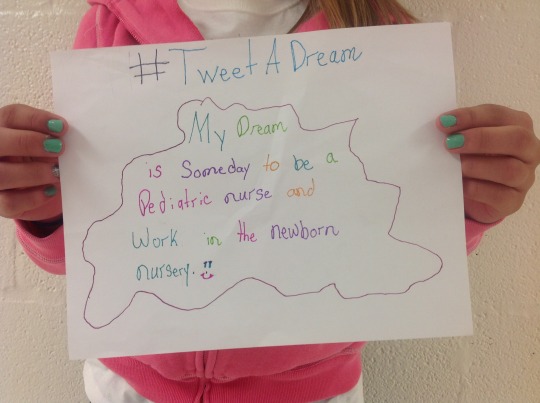 #TweetADream
My Dream
is Someday to be a
Pediatric nurse and
Work in the newborn
nursery.